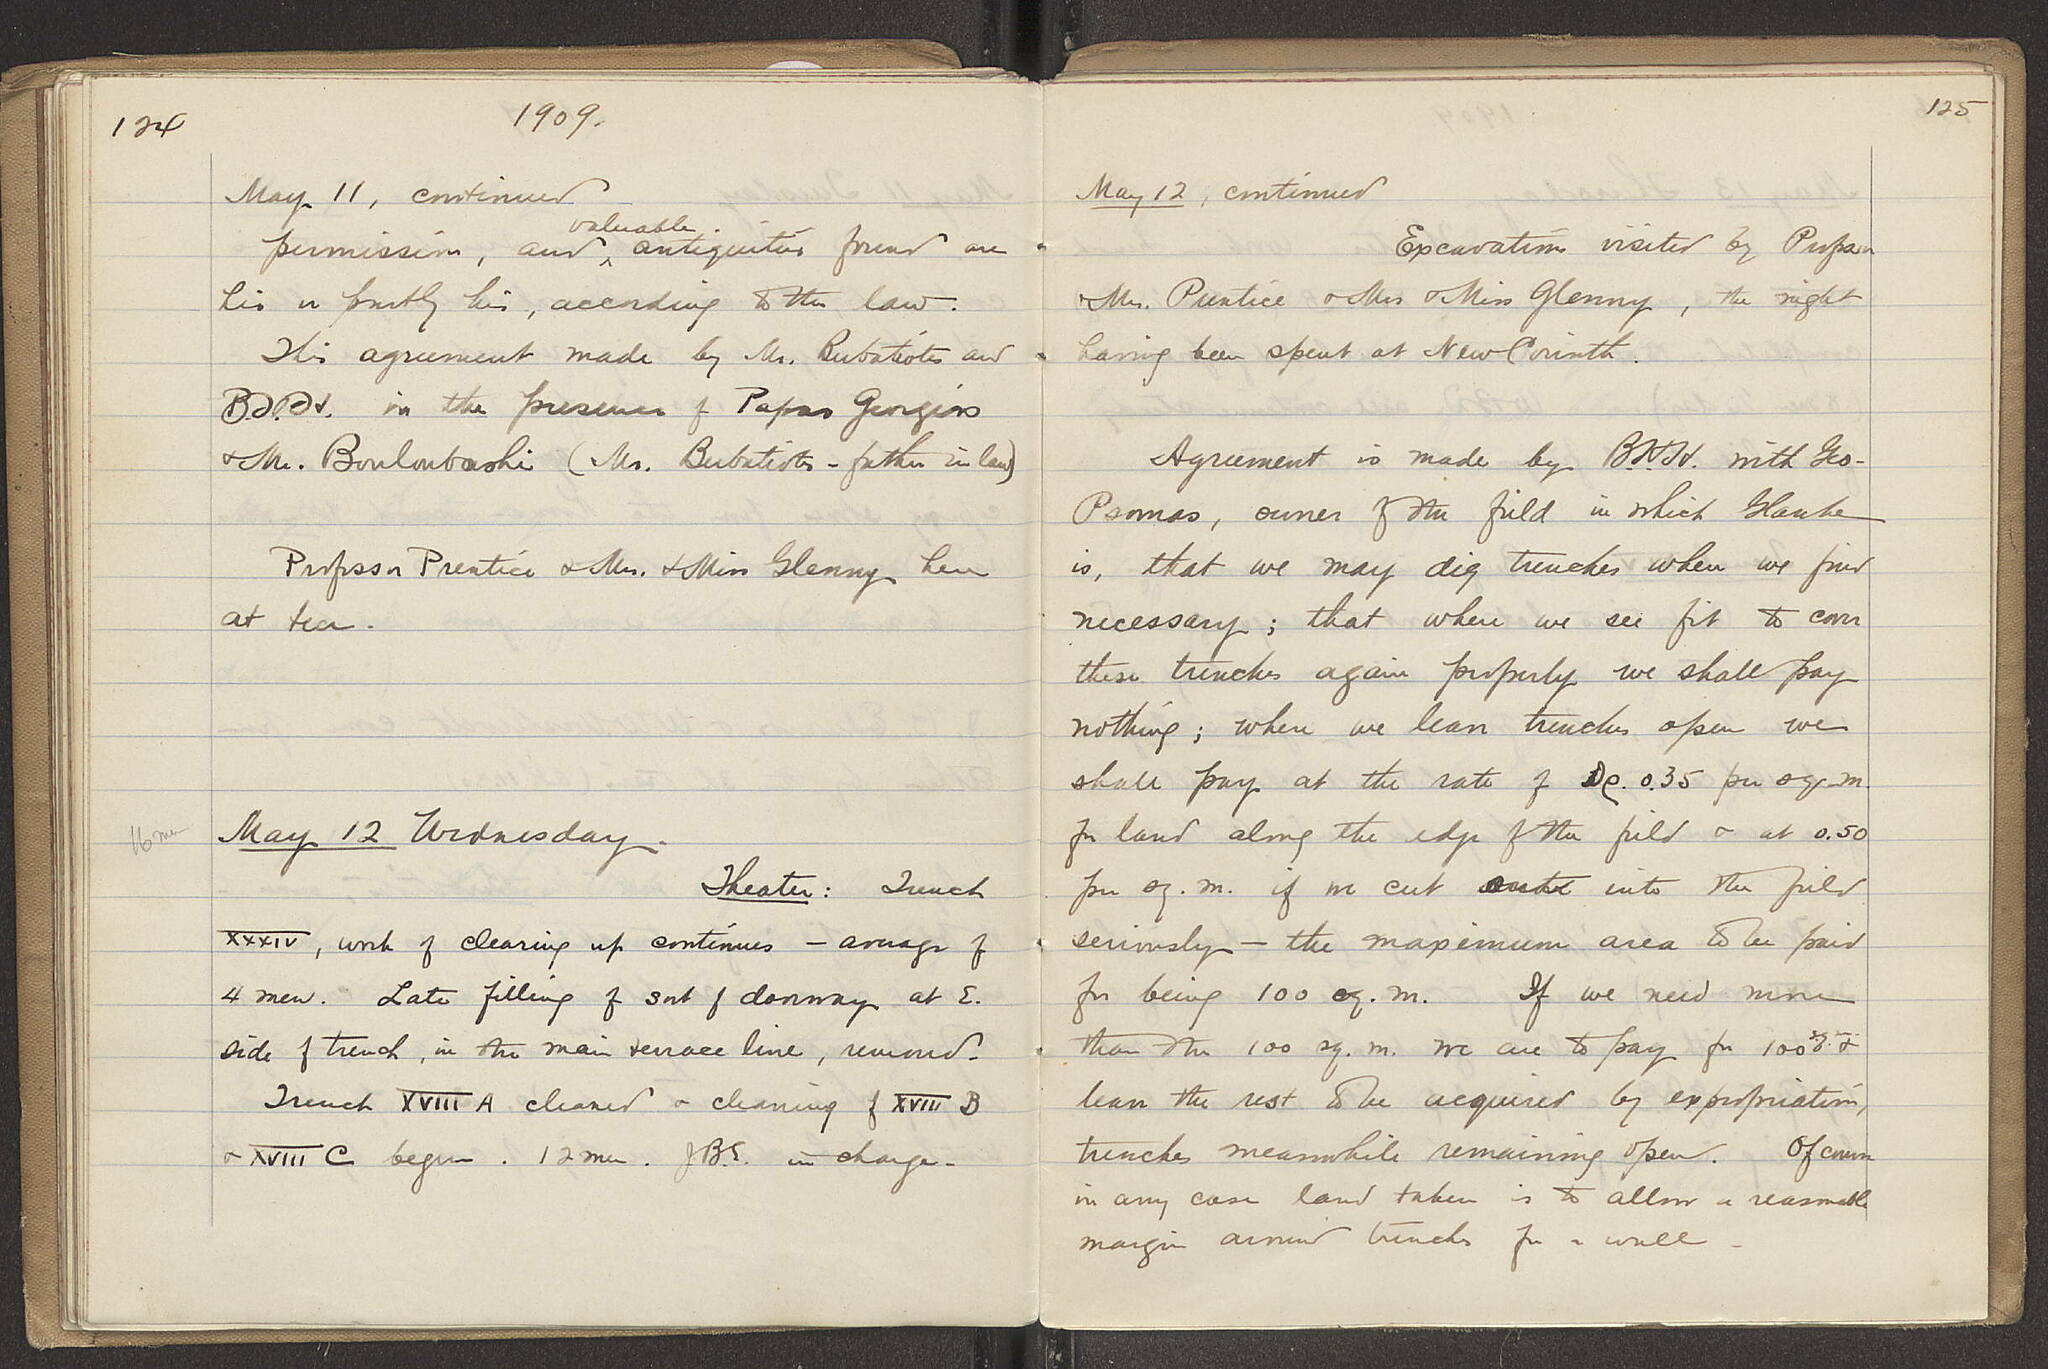 124
1909.
May 11, continued
valuable
permission, and ^ antiquities found are
his or partly his, according to the law.
This agreement made by Mr. and
B.H.H. in the presence of Papas Georgios
& Mr. Bouloubashi (Mr. father in law)
Professor Prentice & Mrs. & Miss Glenny here
at tea.
16 men
May 12 Wednesday.
Theater: Trench
XXXIV, work of clearing up continues – average of
4 men. Late filling of sort of doorway at E.
side of trench, in the main terrace line, removed.
Trench XVIII A cleaned & cleaning of XVIII B
& XVIII C begun. 12 men. J.B.E. in charge.
125
May 12, continued
Excavations visited by Professor
& Mrs. Prentice & Mrs & Miss Glenny, the night
having been spent at New Corinth.
Agreement is made by B.H.H. with Geo-
Psomas, owner of the field in which Glauke
is, that we may dig trenches where we find
necessary; that where we see fit to cover
these trenches again properly we shall pay
nothing; where we leave trenches open we
shall pay at the rate of Dr. 0.35 per sq. m.
for land along the edge of the field & at 0.50
per sq. m. if we cut into the field
seriously – the maximum area to be paid
for being 100 sq. m. If we need more
than the 100 sq. m. we are to pay for 100 sq. m. &
leave the rest to be acquired by expropriation,
trenches meanwhile remaining open. Of course
in any case land taken is to allow a reasonable
margin around trenches for a wall –